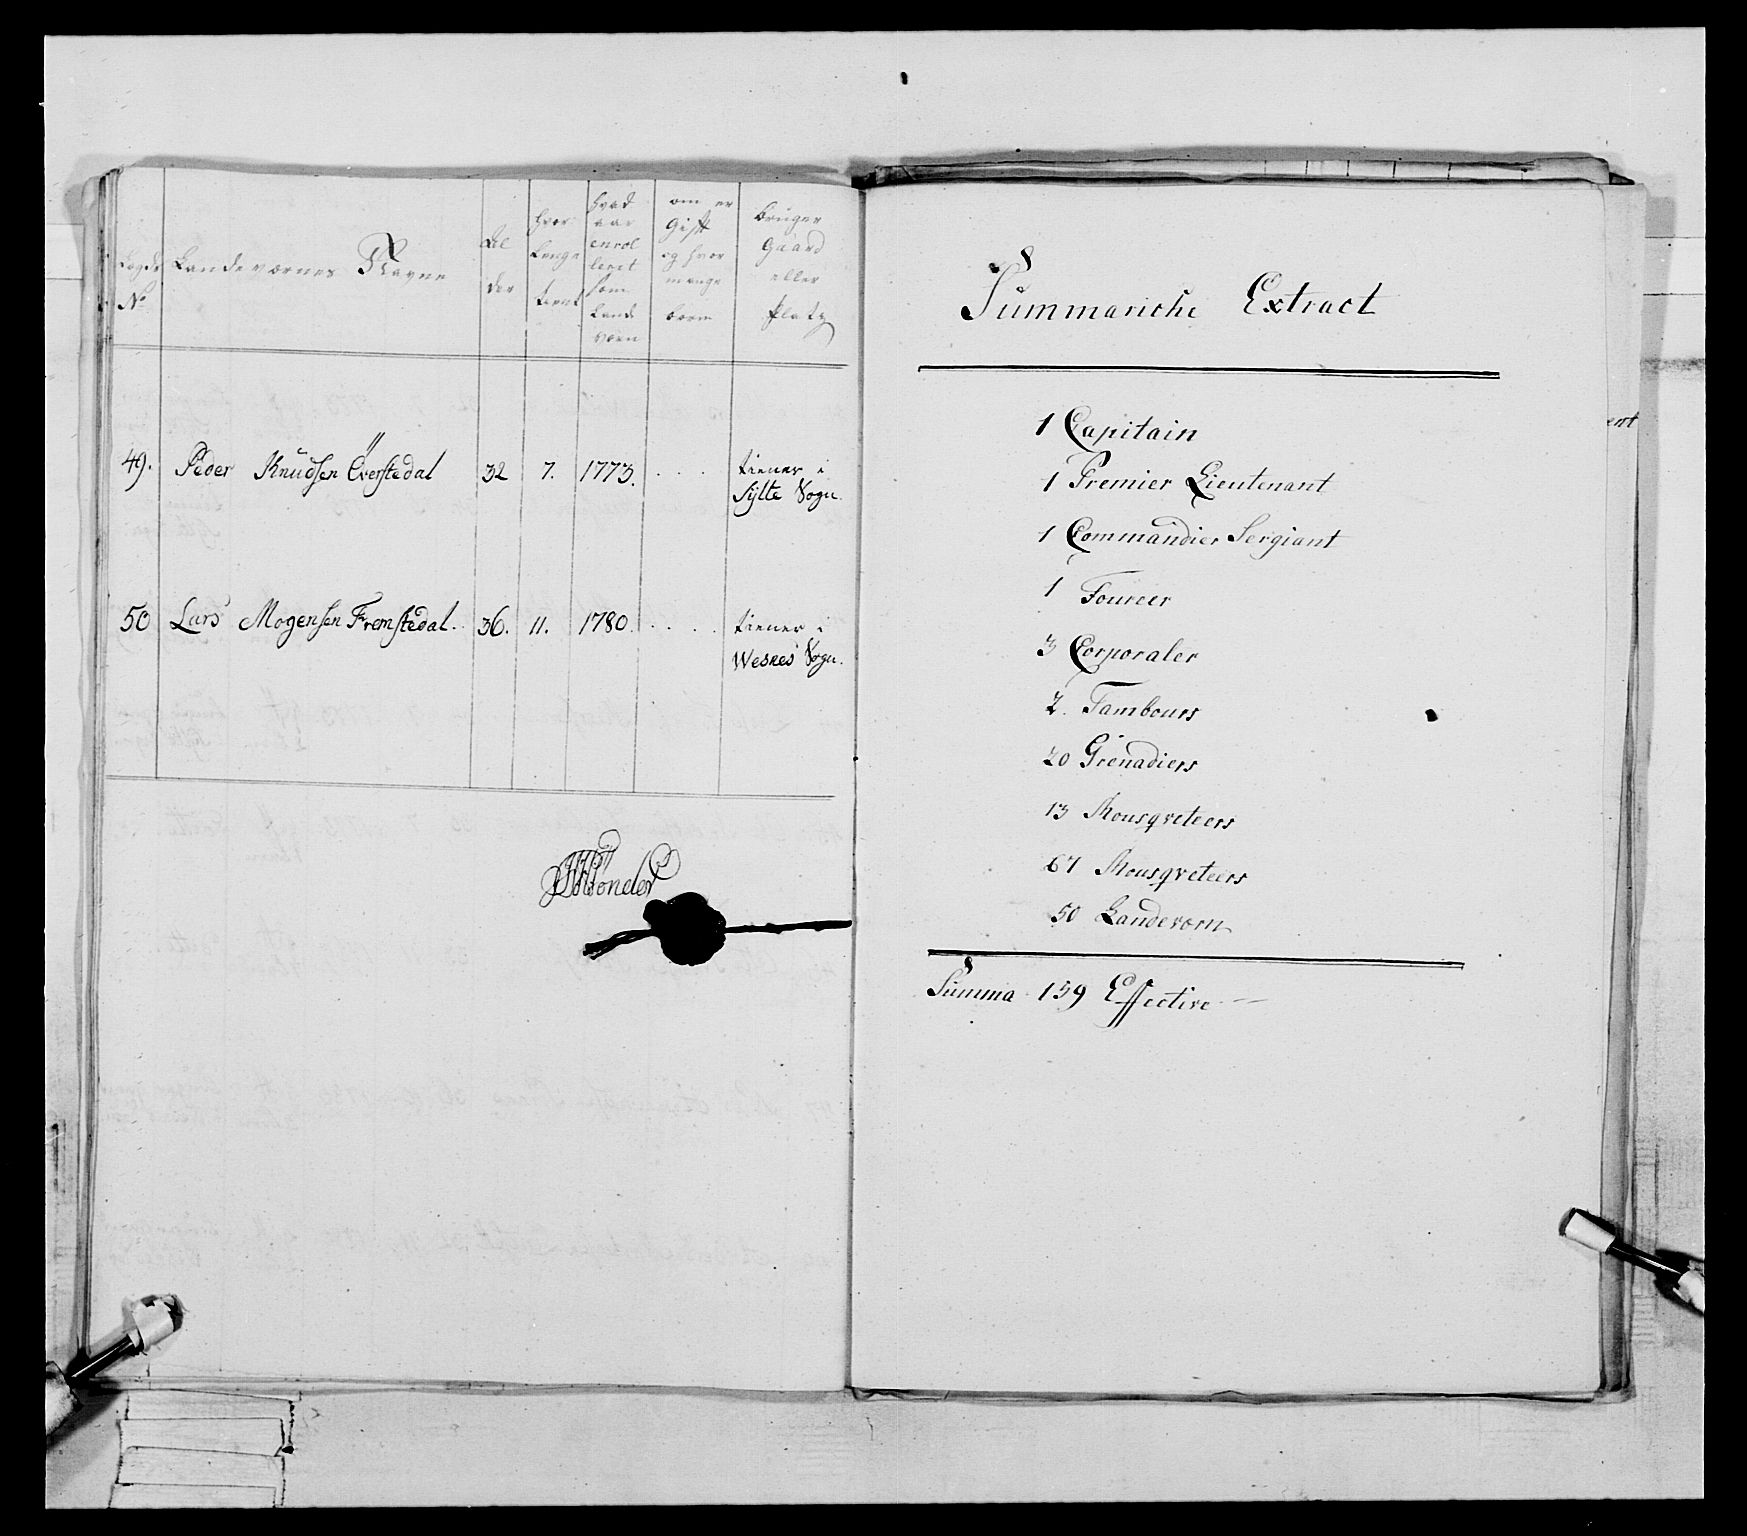 Lægds
No
Landeværnes Navne
Al
der
hvor
Lenge
tient
hvad
aar
enrol
leert
som
Lande
værn
om er
Gift
og hvor
mange
børn
bruger
Gaard
eller
Platz
49. Peder Knudsen Överstedal 32 7. 1773. . . . tiener i
Sylte Sogn.
50 Lars Mogensen Fremstedal. 36. 11. 1780. . . . tiener i
Wesnes Sogn.
Summariche Extract
1 Capitain
1 Premier Lieutenant
1 Commandier Sergiant
1 Foureer
3 Corporaler
2. Tambours
20 Grenadiers
13 Mousqveteers
67 Mousqveteers
50 Landevorn
Summa 159 Effective